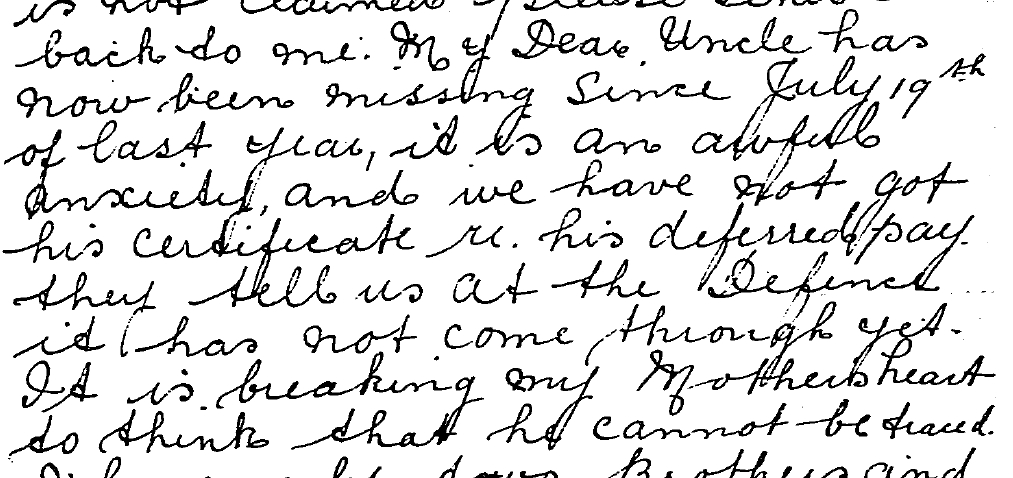 is not claimed please send
back to me. My Dear Uncle has
now been missing Since July 19th
of last year, it is an awful
anxiety, and we have not got
his certificate re. his deferred pay.
they tell us at the Defence
it has not come through yet.
It is breaking my Mothers heart
to think that he cannot be traced.
down Brothers and